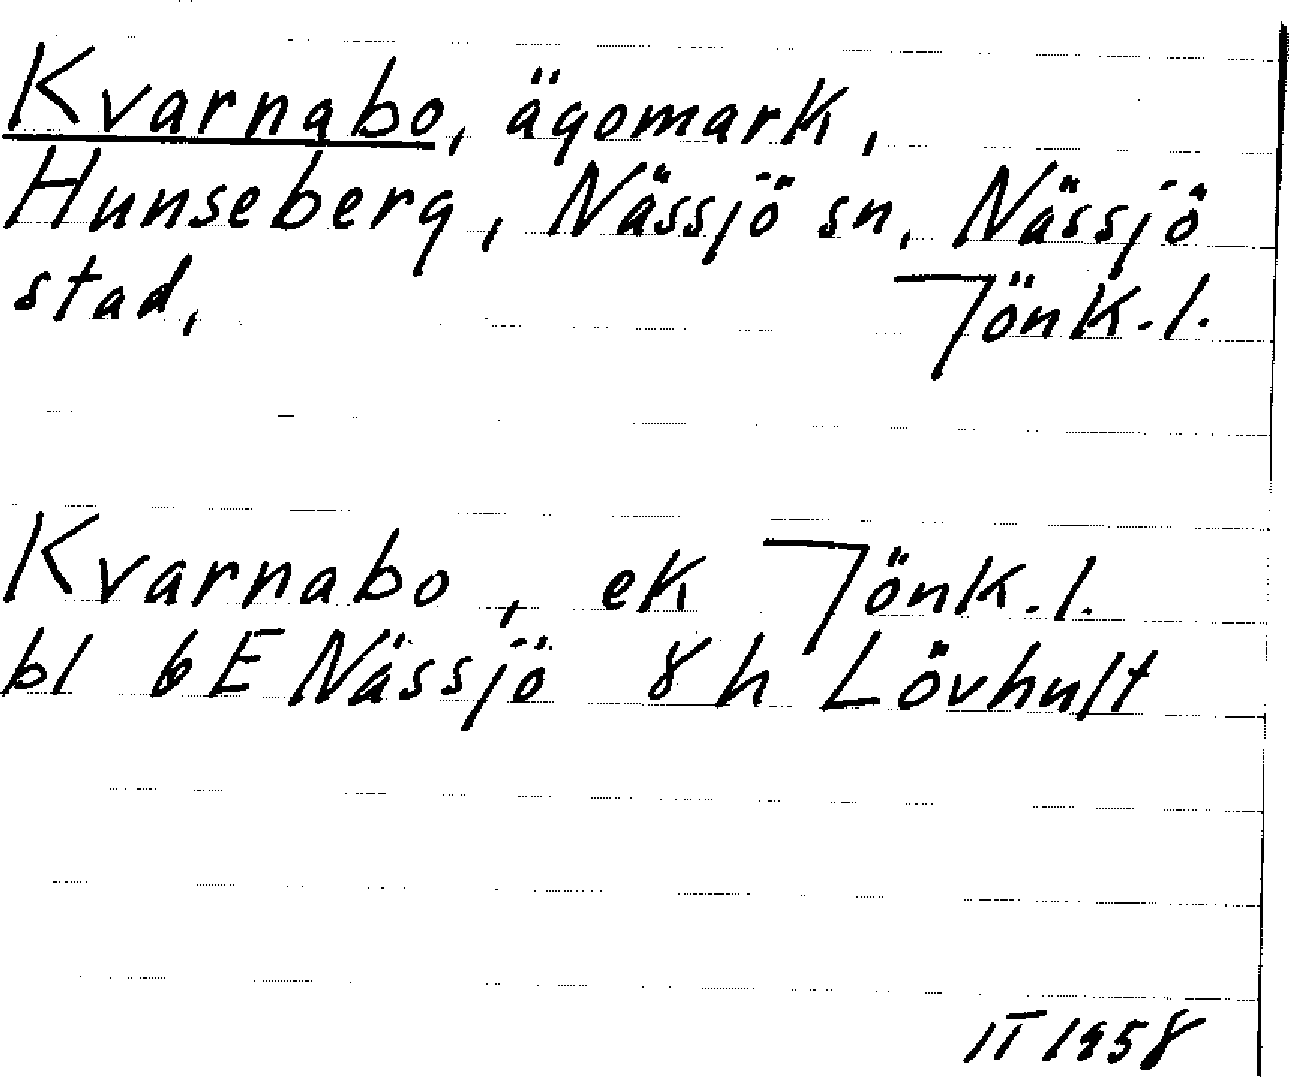 Kvarnabo, ägomark,
Hunseberg, Nässjö sn, Nässjö
stad, Jönk.l.
Kvarnabo, ek Jönk.l.
bl 6E Nässjö 8h Lövhult
II 1958